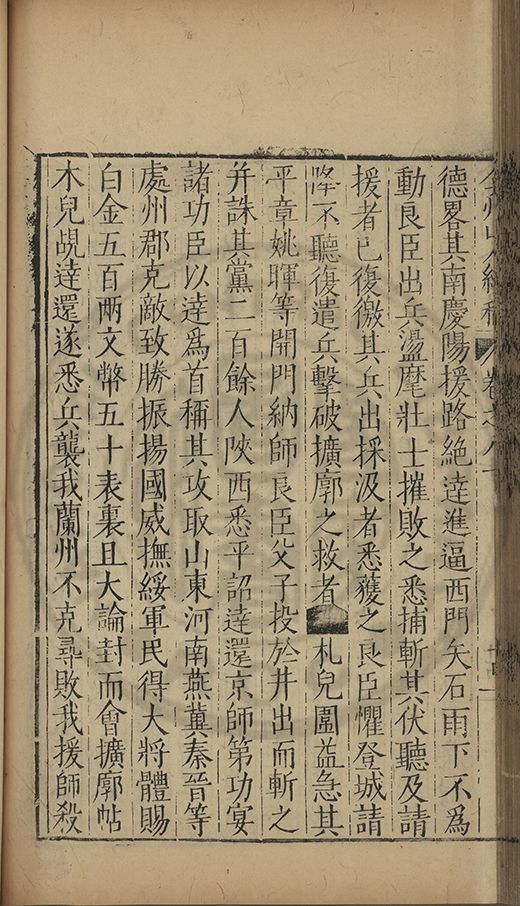 弇州山人續稿 卷之八十
德畧其南慶陽援路絶達進逼西門矢石雨下不爲
動良臣出兵盪麾壯士摧敗之悉捕斬其伏聽及請
援者已復徼其兵出採汲者悉蒦之良臣懼登城請
降不聽復遣兵擊破擴廓之救者札兒圍益急其
平章姚暉等開門納師良臣父子投於井出而斬之
并誅其黨二百餘人陝西悉平詔達還京師第功宴
諸功臣以達爲首稱其攻取山東河南燕冀秦晉等
處州郡克敵致勝振揚國威撫綏軍民得大將體賜
白金五百兩文幣五十表裏且大論封而會擴廓帖
木兒覘達還遂悉兵襲我蘭州不克尋敗我援師殺